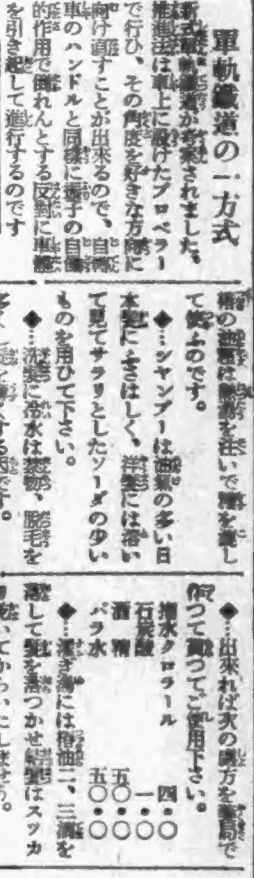 單軌鐵道の一方式
新式單軌鐵道が考案されました、
推進法は車上に設けたプロペラー
で行ひ、その角度を好きな方向に
向け直すことが出來るので、自轉
車のハンドルと同樣に梃子の自働
的作用で倒れんとする反對に車體
を引き起して進行するのです
て使ふのです。
◆…シャンプーは油氣の多い日
本髮にふさはしく、洋髮には溶い
て見てサラリとしたソーダの少い
ものを用ひて下さい。
◆…洗髮に冷水は禁物、脫毛を
◆…出來れば次の處方を藥局で
作つて貰つてご使用下さい。
抱水クロラール 四・〇
石炭酸 一・〇
酒精 五〇・〇
バラ水 五〇・〇
◆…濯ぎ湯には椿油二、三滴を
落して髮を落つかせ結髮はスッカ